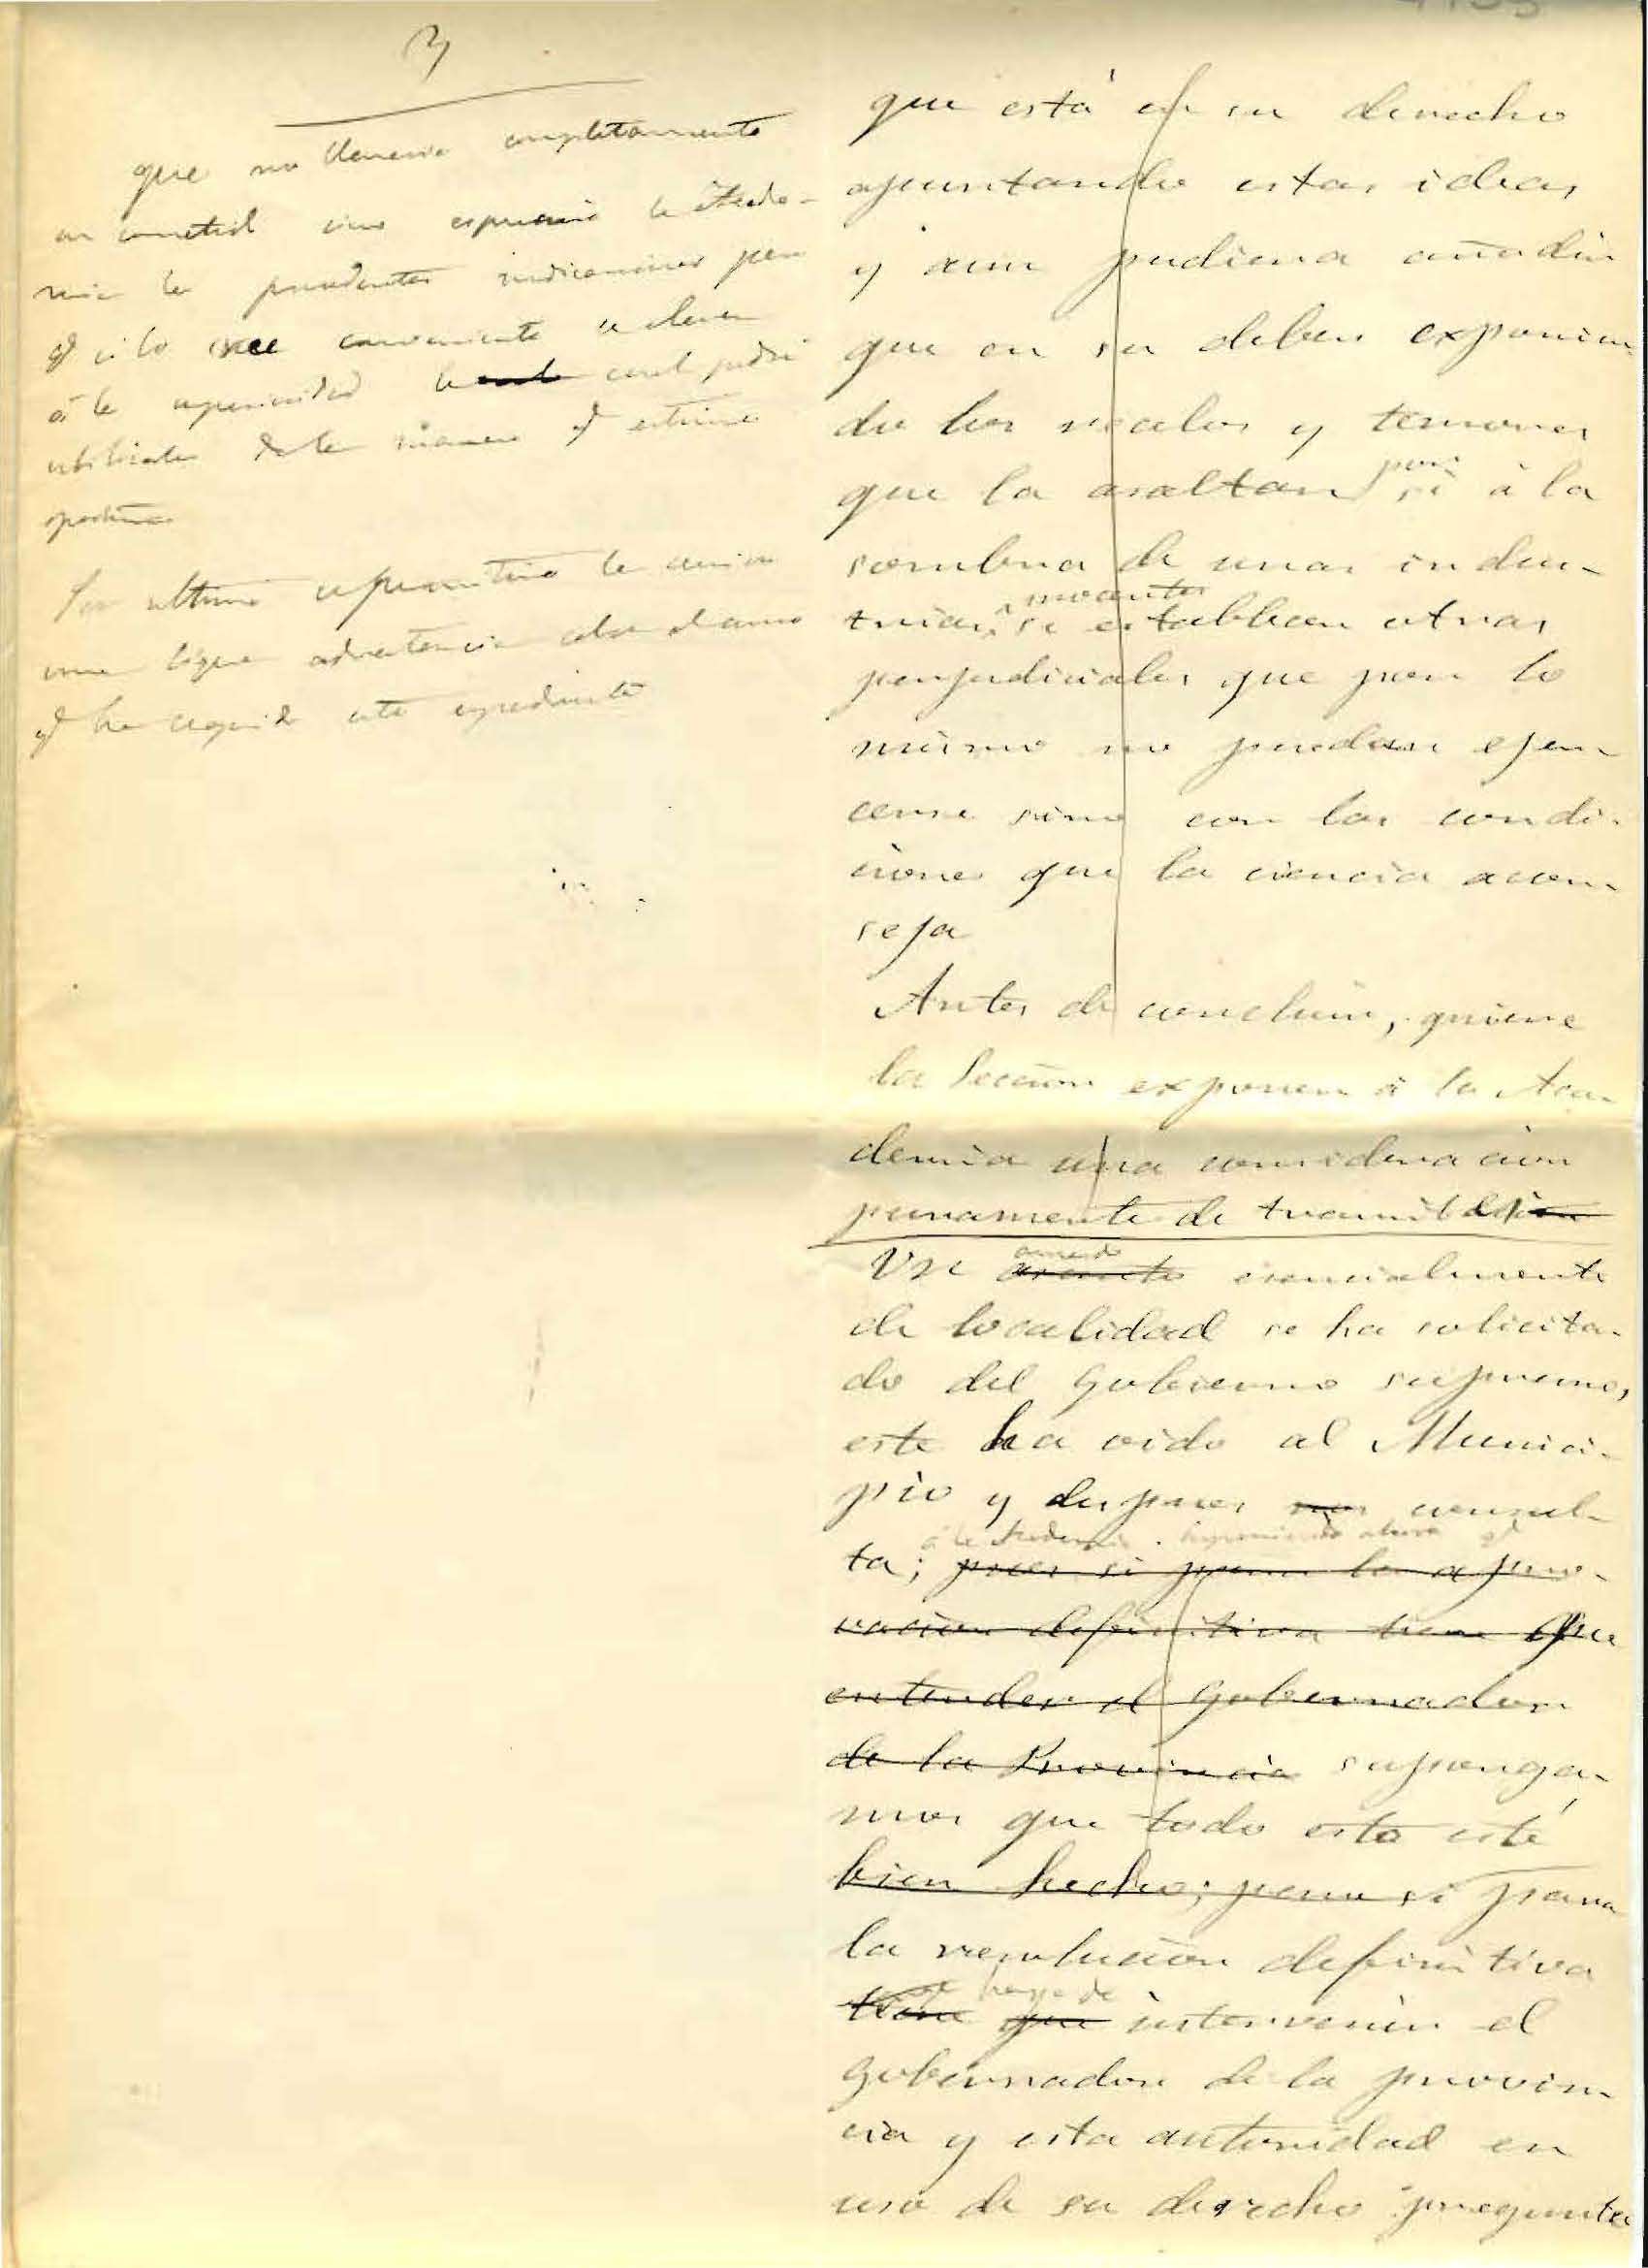 3
que no llenaria completamente
su cometido sino espusiera la Acade-
mia las precedentes indicaciones para
q si lo cree conveniente se eleven
á la superioridad la cual podrá
utilizarlas de la manera q estime
oportuna
Por ultimo
una ligera advertencia
q ha seguido este expediente
que está en su derecho
apuntando estas ideas
y aun pudiera añadir
que en su deber exponien
do los recelos y temores
que la asaltan por si á la
sombra de unas indus-
trias inocentes se establecen otras
perjudiciales que por lo
mismo no puedan ejer-
cerse sino con las condi-
ciones que la ciencia acon-
seja
Antes de concluir, quiere
la Seccion exponer á la Aca-
demia una consideracion
puramente de tramitacion
Un asunto esencialmente
de localidad se ha solicita-
do del Gobierno supremo,
este ha oido al Munici-
pio y despues nos consul-
á la Academia
ta; pues si para la apro-
vacion definitiva tiene que
entender el Gobernador
de la Provincia suponga-
mos que todo esto esté
bien hecho; pero si para
la resolucion definitiva
haya de
tiene que intervenir el
Gobernador de la provin-
cia y esta autoridad en
uso de su derecho pregunta